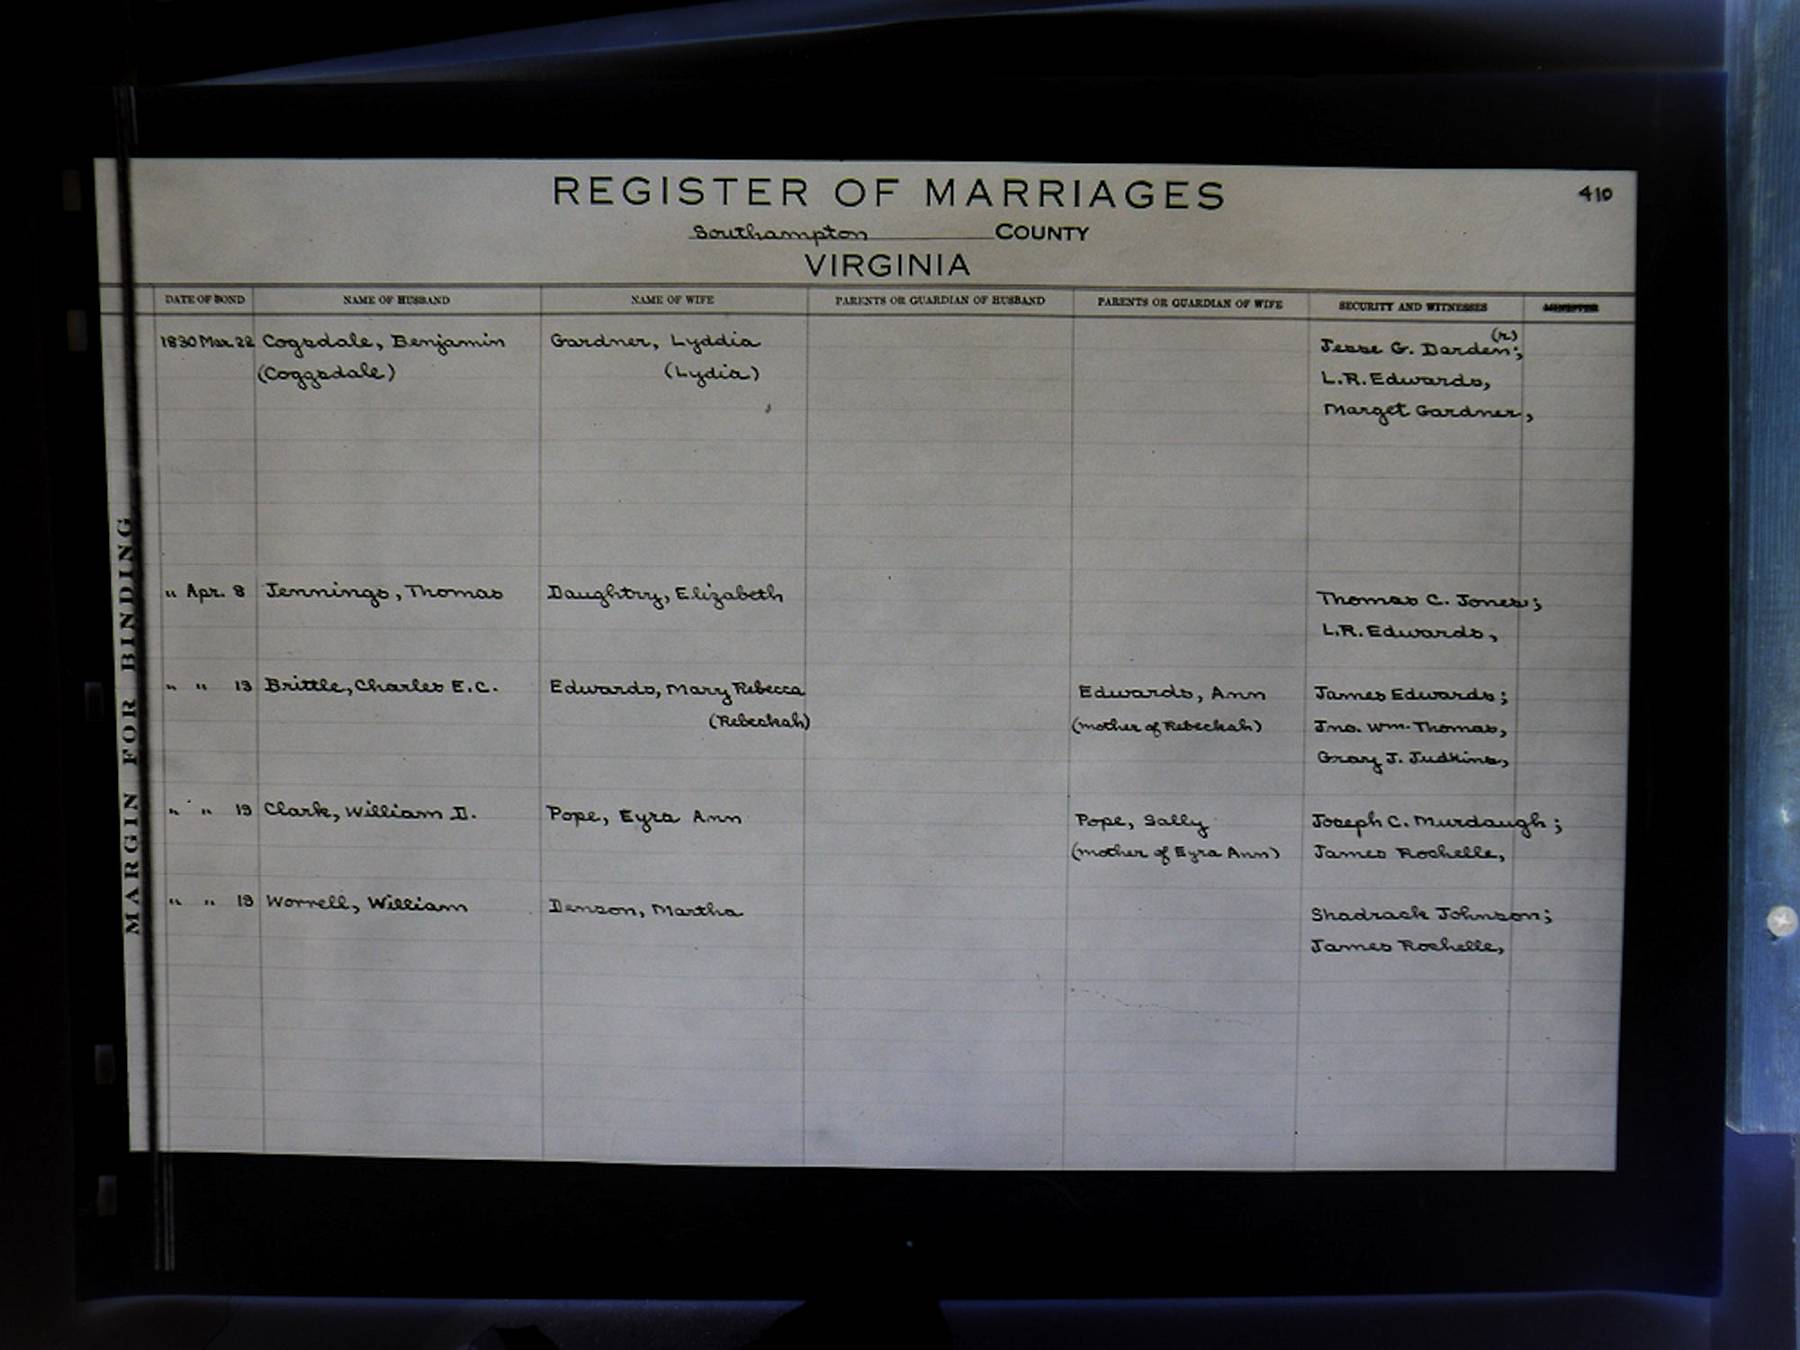 REGISTER OF MARRIAGES
410
Southampton COUNTY
VIRGINIA
DATE OF BOND NAME OF HUSBAND NAME OF WIFE PARENTS OR GUARDIAN OF HUSBAND PARENTS OR GUARDIAN OF WIFE SECURITY AND WITNESSES MINISTER
1830 Mar. 22 Cogsdale, Benjamin Gardner, Lyddia Jesse G. Darden (r);
(Coggsdale) (Lydia) L.R. Edwards,
Marget Gardner,
" Apr. 8 Jennings, Thomas Daughtry, Elizabeth Thomas C. Jones;
L.R. Edwards,
" " 13 Brittle, Charles E.C. Edwards, Mary Rebecca Edwards, Ann James Edwards;
(Rebeckah) (mother of Rebeckah) Jno. Wm. Thomas,
Gray J. Judkins,
" " 19 Clark, William D. Pope, Eyra Ann Pope, Sally Joseph C. Murdaugh;
(mother of Eyra Ann) James Rochelle,
" " 19 Worrell, William Denson, Martha Shadrack Johnson;
James Rochelle,
MARGIN FOR BINDING